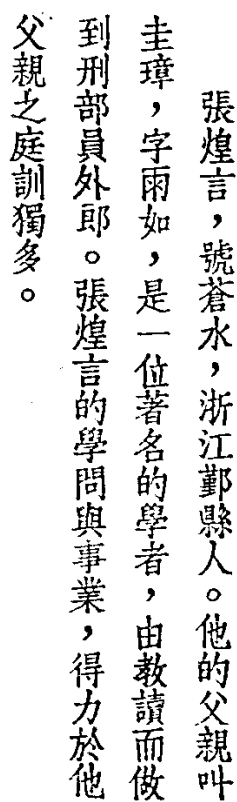 張煌言，號蒼水，浙江鄞縣人。他的父親叫
圭璋，字雨如，是一位著名的學者，由教讀而做
到刑部員外郎。張煌言的學問與事業，得力於他
父親之庭訓獨多。